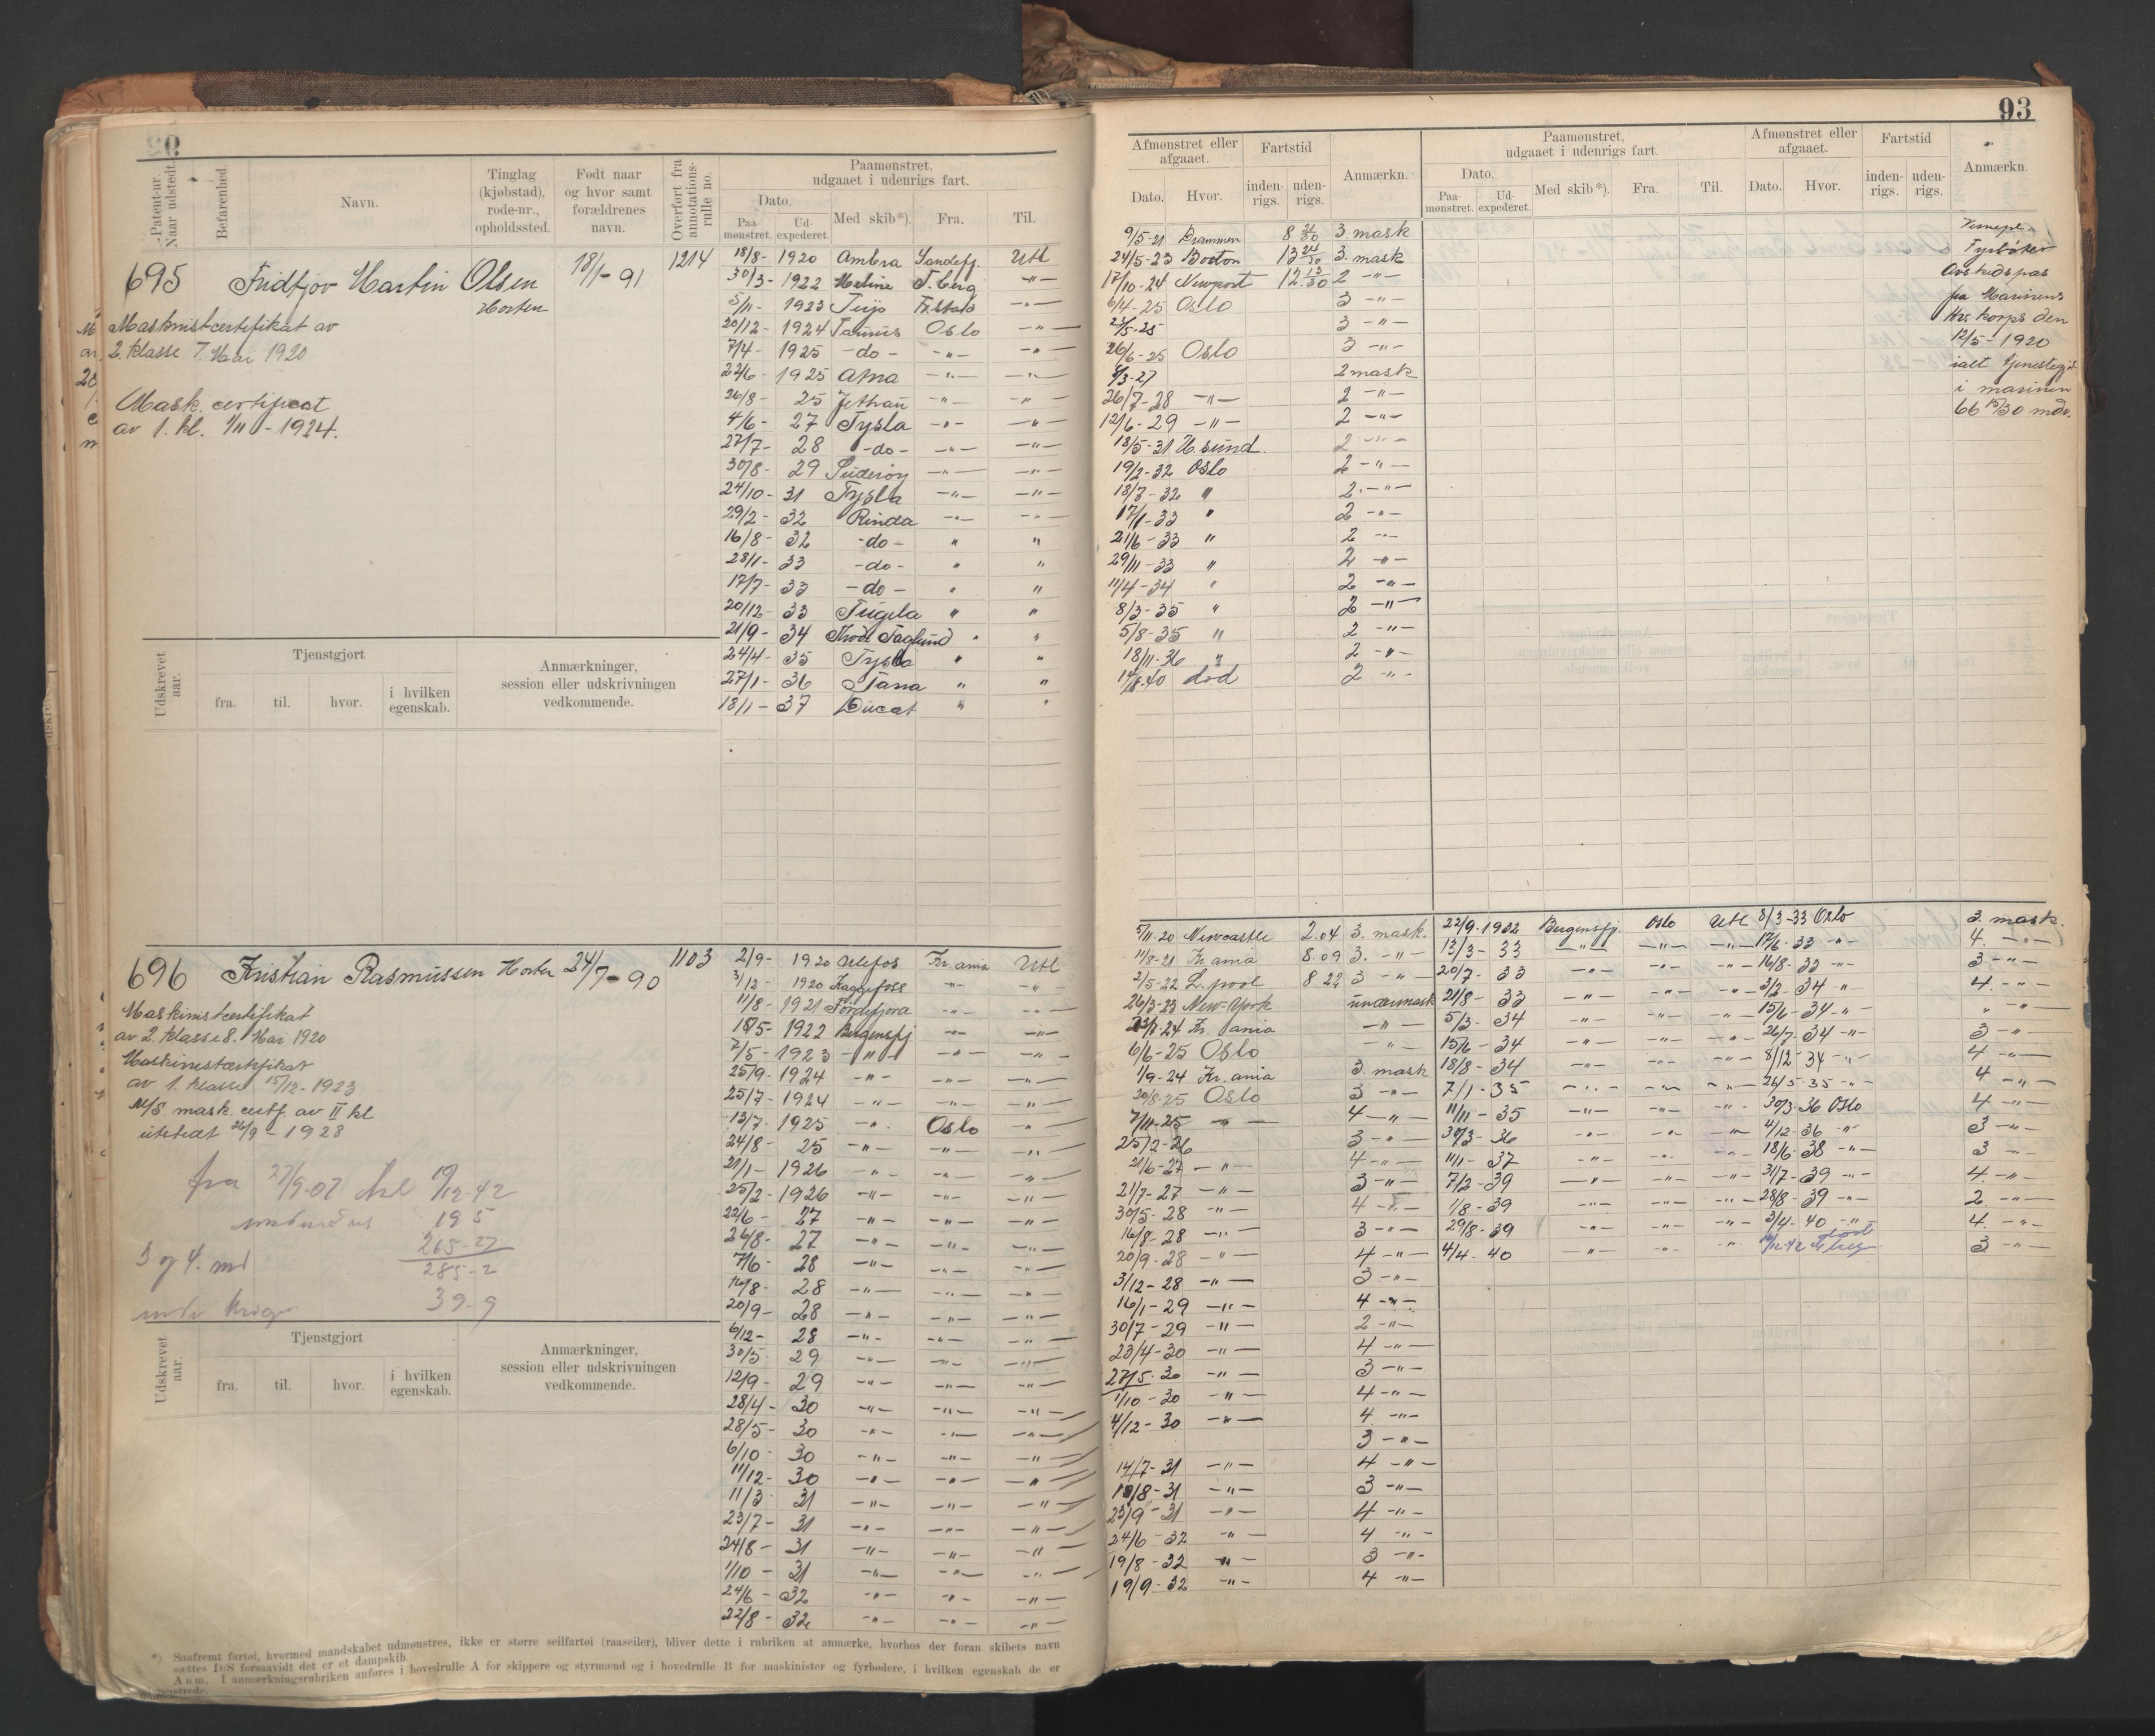 93
Patent-nr. Naar udstedt.
Befarenhed.
Navn.
Tinglag (kjøbstad), rode-nr., opholdssted.
Født naar og hvor samt forældrenes navn.
Overført fra annotations-rulle no.
Paamønstret, udgaaet i udenrigs fart.
Dato.
Paa-mønstret.
Ud-expederet.
Med skib*).
Fra.
Til.
695 Fridtjov Martin Olsen 18/1-91 1214
Horten
Maskinistcertifikat av
2. klasse 7. Mai 1920
Mask. certificat
av 1. kl. 1/11 - 1924.
18/8- 1920 Ambra Sandefj. Utl
30/3- 1922 Meline T.berg -"-
5/11- 1923 Teijo -"-
20/12- 1924 Taurus Oslo -"-
7/4- 1925 -do- -"- -"-
22/6- 1925 -"- -"-
26/8- 25 -"- -"-
4/6- 27 Tysla -"- -"-
27/7- 28 -do- -"- -"-
30/8- 29 Suderøy -"- -"-
24/10- 31 Tysla -"- -"-
29/2- 32 Rinda -"- -"-
16/8- 32 -do- " "
28/1- 33 -do- " "
17/7- 33 -do- " "
20/12- 33 Tugela " "
21/9- 34 Thode Faglund " "
24/4- 35 Tysla " "
27/1- 36 Tana " "
18/11- 37 Ducat " "
Udskrevet aar.
Tjenstgjort
fra.
til.
hvor.
i hvilken egenskab.
Anmærkninger, session eller udskrivningen vedkommende.
696 Kristian Rasmussen Horten 24/7-90 1103
Maskinistcertifikat
av 2. klasse 8. Mai 1920
Maskinistcertifikat
av 1. klasse 15/12-1923
M/S mask. certf. av II kl
utstedt 26/9-1928
fra 27/9-07 til 9/12-42
195
265-27
3 og 4. md 285-2
39-9
2/9- 1920 Ulefos Kr.ania Utl
3/12- 1920 Kaggefoss -"- -"-
11/8- 1921 Fordefjord -"- -"-
18/5- 1922 Bergensfj -"- -"-
7/5- 1923 -"- -"- -"-
25/9- 1924 -"- -"- -"-
25/7- 1924 -"- -"- -"-
13/7- 1925 -"- Oslo -"-
24/8- 25 -"- -"- -"-
21/1- 1926 -"- -"- -"-
25/2- 1926 -"- -"- -"-
22/6- 27 -"- -"- -"-
26/8- 27 -"- -"- -"-
7/6- 28 -"- -"- -"-
16/8- 28 -"- -"- -"-
20/9- 28 -"- -"- -"-
6/12- 28 -"- -"- -"-
30/5- 29 -"- -"- -"-
12/9- 29 -"- -"- -"-
28/4- 30 -"- -"- -"-
28/5- 30 -"- -"- -"-
6/10- 30 -"- -"- -"-
11/12- 30 -"- -"- -"-
11/3- 31 -"- -"- -"-
23/7- 31 -"- -"- -"-
24/8- 31 -"- -"- -"-
1/10- 31 -"- -"- -"-
24/6- 32 -"- -"- -"-
22/8- 32 -"- -"- -"-
Udskrevet aar.
Tjenstgjort
fra.
til.
hvor.
i hvilken egenskab.
Anmærkninger, session eller udskrivningen vedkommende.
*) Saafremt fartøi, hvormed mandskabet udmønstres, ikke er større seilfartøi (raaseiler), bliver dette i rubriken at anmærke, hvorhos der foran skibets navn
sættes D/S forsaavidt det er et dampskib.
Anm. I anmærkningsrubriken anføres i hovedrulle A for skippere og styrmænd og i hovedrulle B for maskinister og fyrbødere, i hvilken egenskab de er
Afmønstret eller afgaaet.
Fartstid
Anmærkn.
Dato.
Hvor.
inden-rigs.
uden-rigs.
Paamønstret, udgaaet i udenrigs fart.
Dato.
Paa-mønstret.
Ud-expederet.
Med skib*).
Fra.
Til.
Afmønstret eller afgaaet.
Dato.
Hvor.
Fartstid
inden-rigs.
uden-rigs.
Anmærkn.
9/5-21 Drammen 8 21/30 3. mask
24/5-23 Boston 13 24/30 3. mask
17/10-24 Newport 12 13/30 2 -"-
6/4-25 Oslo 3 -"-
23/5-25 3 -"-
26/6-25 Oslo 3 -"-
8/3-27 2 mask
26/7-28 -"- 2 -"-
12/6-29 -"- 2 -"-
18/5-31 H.sund. 2 -"-
19/2-32 Oslo 2 -"-
18/7-32 " 2 -"-
17/1-33 " 2 -"-
21/6-33 " 2 -"-
29/11-33 " 2 -"-
11/4-34 " 2 -"-
8/3-35 " 2 -"-
5/8-35 " 2 -"-
18/11-36 " 2 -"-
14/8-40 død 2 -"-
Fyrbøter
Avskedspas
fra Marinens
Hv. korps den
12/5-1920
ialt tjenestegj.
i marinen
66 15/30 mdr.
5/11.20 Newcastle 2.04 3. mask. 22/9-1932 Bergensfj. Oslo Utl 8/3-33 Oslo 3. mask.
11/8-21 Kr ania 8.09 3. -"- 13/3-33 -"- -"- -"- 17/6-33 -"- 4. -"-
2/5-22 L.pool 8 22 3 -"- 20/7-33 -"- -"- -"- 16/8-33 -"- 3 -"-
26/3-23 New-York undermask 21/8-33 -"- -"- -"- 3/2-34 -"- 4. -"-
23/7-24 Kr. ania -"- 5/3-34 -"- -"- -"- 15/6-34 -"- " -"-
6/6-25 Oslo -"- 15/6-34 -"- -"- -"- 26/7-34 -"- 3 -"-
1/9-24 Kr.ania 3. mask 18/8-34 -"- -"- -"- 8/12-34 -"- 4 -"-
20/8-25 Oslo 3 -"- 7/1-35 -"- -"- -"- 26/5-35 -"- 4 -"-
7/11-25 -"- 4 -"- 11/11-35 -"- -"- -"- 30/3-36 Oslo 4 -"-
25/2-26 3 -"- 30/3-36 -"- -"- -"- 4/12-36 -"- 3 -"-
21/6-27 -"- 4 -"- 11/1-37 -"- -"- -"- 18/6-38 -"- 3 -"-
21/7-27 -"- 3 -"- 7/2-39 -"- -"- -"- 31/7-39 -"- 4. -"-
30/5-28 -"- 4 -"- 1/8-39 -"- -"- -"- 28/8-39 -"- 2. -"-
16/8-28 -"- 3 -"- 29/8-39 -"- -"- -"- 3/4-40 -"- 4. -"-
20/9-28 -"- 4 -"- 4/4-40 -"- -"- -"- 3 -"-
3/12-28 -"- 3 -"-
16/1-29 -"- 4 -"-
30/7-29 -"- 2 -"-
23/4-30 -"- 4 -"-
27/5-30 -"- 3 -"-
1/10-30 -"- 4 -"-
4/12-30 -"- 4 -"-
3 -"-
14/7-31 -"- 4 -"-
19/8-31 -"- 3 -"-
23/9-31 -"- 4 -"-
24/6-32 -"- 4 -"-
19/8-32 -"- 3 -"-
19/9-32 -"- 4 -"-